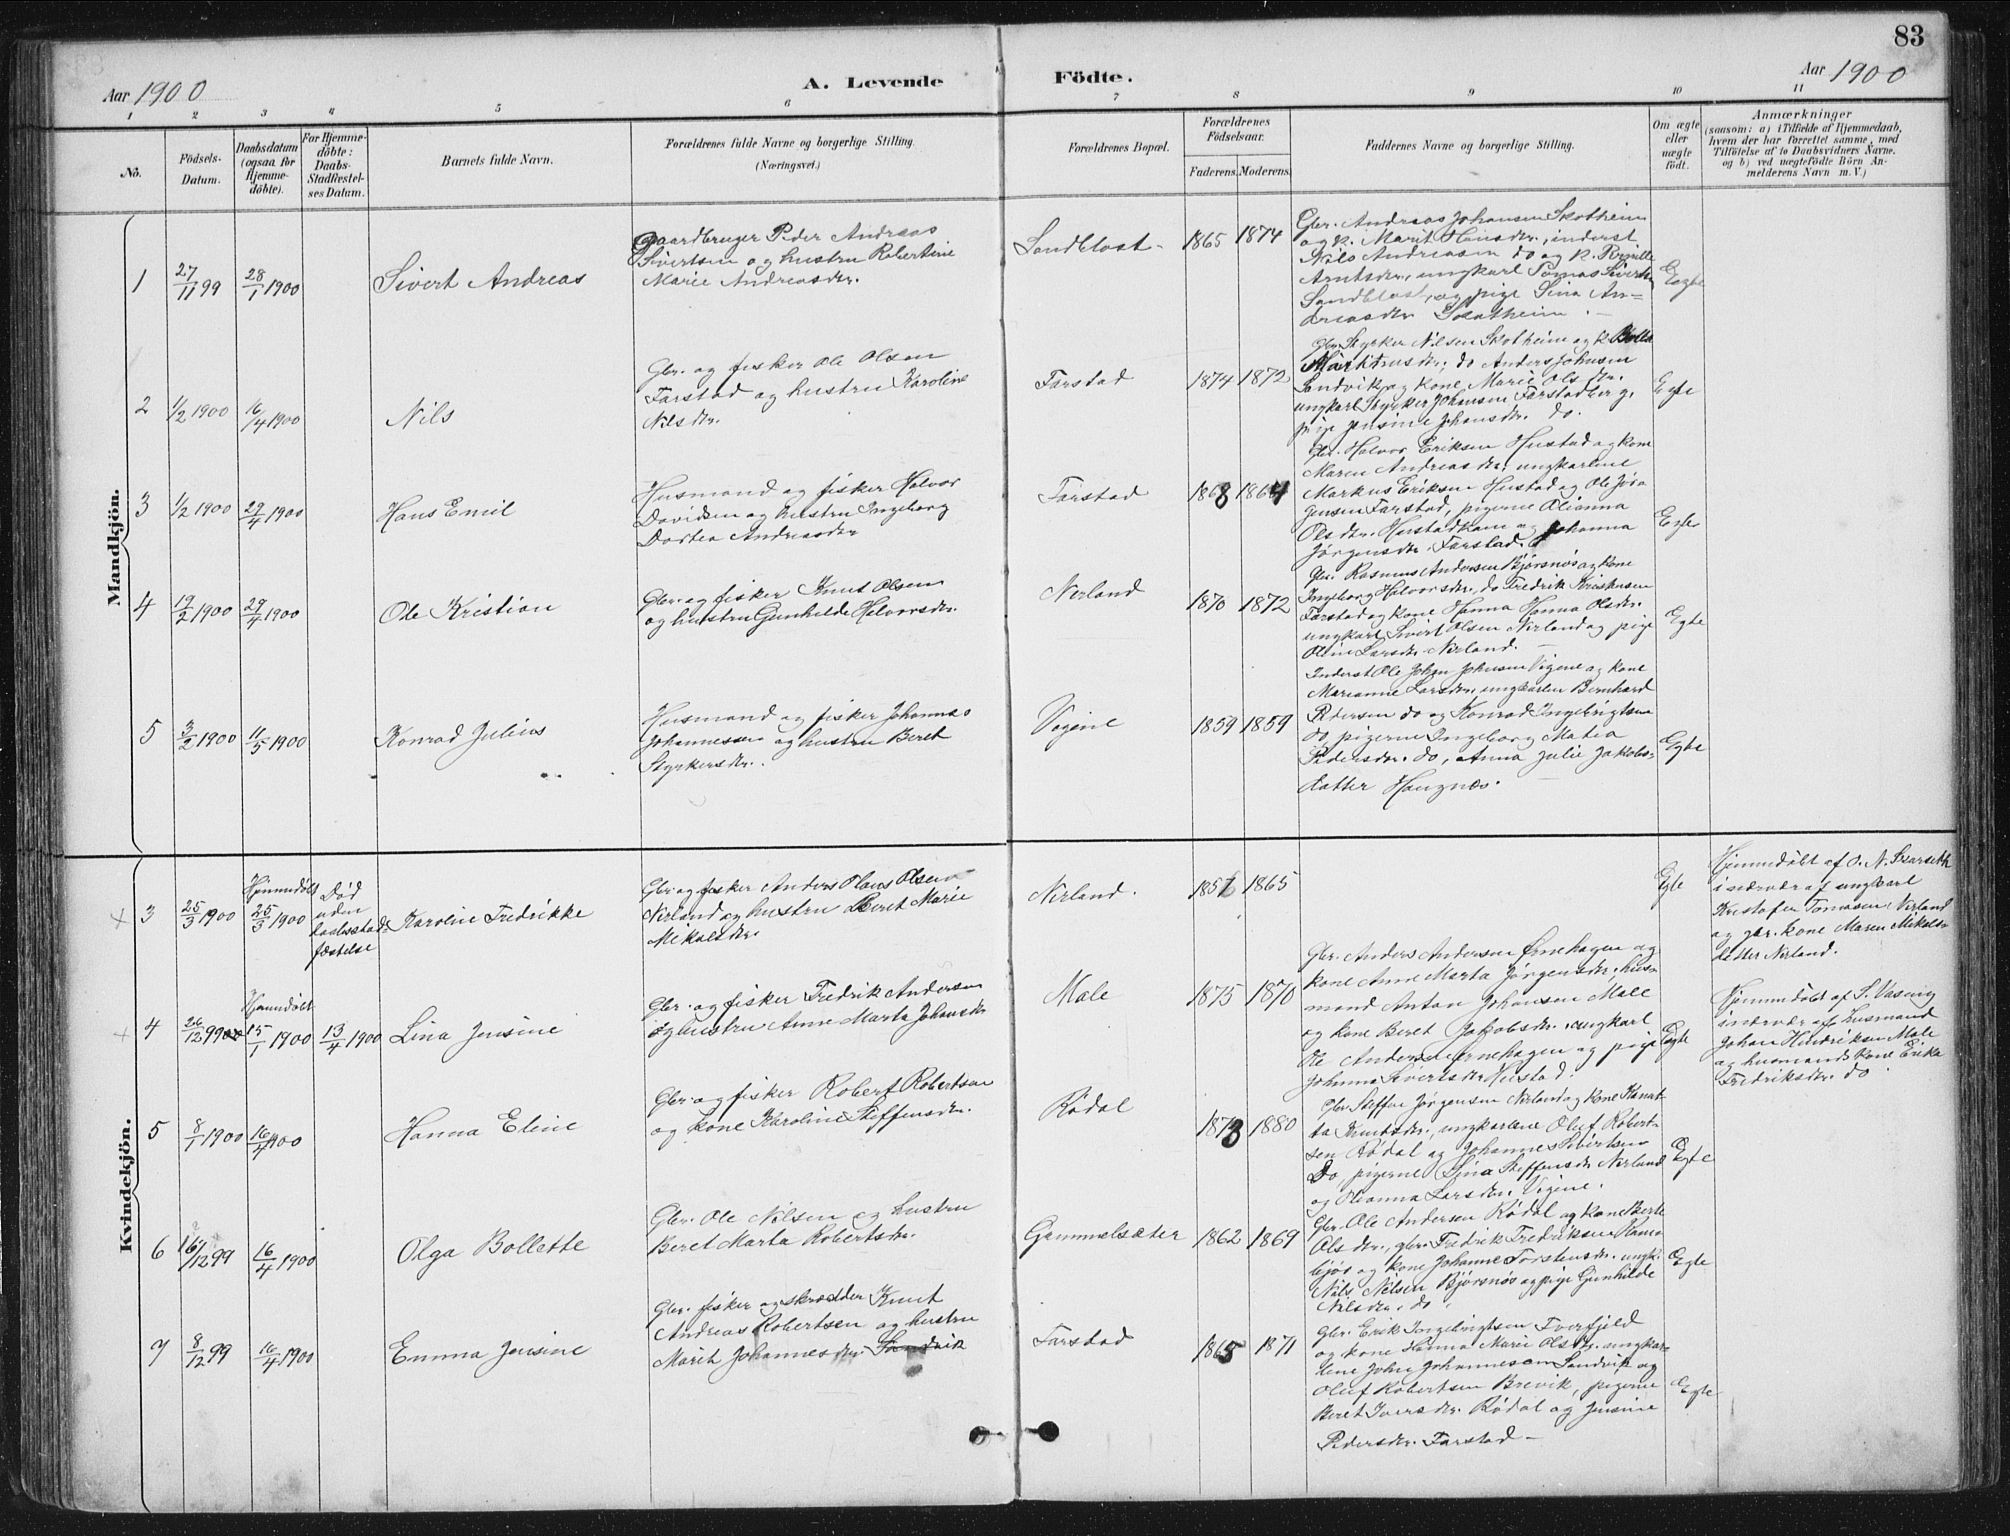 83
Aar 1900
A. Levende
Födte.
Aar 1900
1 2 3 4 5 6 7 8 9 10 11
No.
Födsels-Datum.
Daabsdatum (ogsaa for Hjemme-döbte).
For Hjemme-döbte: Daabs-Stadfæstel-ses Datum.
Barnets fulde Navn.
Forældrenes fulde Navne og borgerlige Stilling.
(Næringsvei.)
Forældrenes Bopæl.
Forældrenes Födselsaar.
Faderens. Moderens.
Faddernes Navne og borgerlige Stilling.
Om ægte eller uægte födt.
Anmærkninger
(saasom: a) i Tilfælde af Hjemmedaab,
hvem der har forrettet samme, med
Tilföielse af to Daabsvidners Navne.
og b) ved uægtefödte Börn An-
melderens Navn m. V.)
Mandkjön.
1
27/11 99
28/1 1900
Sivert Andreas
Gaardbruger Peder Andreas
Sivertsen og hustru Robertine
Marie Andreasdtr.
Sandblost
1865 1874
Gbr. Andreas Johansen Skotheim
og k. Marit Hansdtr., inderst
Nils Andreasen do og k.
Arntsdtr., ungkarl Tomas Sivertsen
Sandblost, og pige Sina An-
dreasdtr. Skotheim.
Egte
2
1/2 1900
16/4 1900
Nils
Gbr. og fisker Ole Olsen
Farstad og hustru Karoline
Nilsdtr.
Farstad
1874 1872
Gbr. Styrker Nilsen Skotheim og k.
do Anders Johnsen
Sandvik og kone Marie Olsdtr.
ungkarl Styrker Johansen Farstadberg,
pige Jensine Johansdtr. do.
Egte
3
1/2 1900
29/4 1900
Hans Emil
Husmand og fisker Halvor
Davidsen og hustru Ingeborg
Dortea Andreasdtr
Farstad
1868 1864
Gbr. Halvor Eriksen Hustad og kone
Maren Andreasdtr., ungkarlene
Markus Eriksen Hustad og Ole Jør-
gensen Farstad, pigerne Olianna
Olsdtr. Hustad og Johanna
Jørgensdtr. Farstad.
Egte
4
19/2 1900
29/4 1900
Ole Kristian
Gbr. og fisker Knut Olsen
og hustru Gunhilde Halvorsdtr.
Nerland
1870 1872
Gbr. Rasmus Andersen Bjørsnøs og kone
Ingeborg Halvorsdtr., do Fredrik Kristiansen
Farstad og kone Hanna Hanna Olsdtr.
ungkarl Sivert Olsen Nerland og pige
Oline Larsdtr. Nerland.
Egte
5
3/2 1900
11/5 1900
Konrad Julius
Husmand og fisker Johannes
Johannessen og hustru Beret
Styrkersdtr.
Vegine
1859 1859
Inderst Ole Johan Johnsen Vigene og kone
Marianne Larsdtr., ungkarlen Bernhard
Pedersen do og Konrad Ingebrigtsen
do, pigerne Ingeborg Matea
Pedersdtr. do, Anna Julie Jakobs-
datter Haugnæs.
Egte
Kvindekjön.
3
25/3 1900
Hjemmedøbt
25/3 1900
Død
uden
daabsstad-
fæstelse
Karoline Fredrikke
Gbr. og fisker Anders Olaus Olsen
Nerland og hustru Beret Marie
Mikalsdtr.
Nerland.
1865
Egte
Hjemmedøbt af O. N.
i nærvær af ungkarl
Kristofer Tomasen Nerland
og gbr. kone Maren Mikals-
datter Nerland.
4
26/12 99
Hjemmedøbt
15/1 1900
13/4 1900
Lina Jensine
Gbr. og fisker Fredrik Andersen
og hustru Anne Marta Johansdtr
Male
1875 1870
Gbr. Anders Andersen Ørnehagen og
kone Anne Marta Jørgensdtr., hus-
mand Anton Johansen Male
og kone Beret Jakobsdtr. ungkarl
Ole Andersen Ørnehagen og pige
Johanna Sivertsdtr Hustad.
Egte
Hjemmedøbt af S. Vasvig
i nærvær af husmand
Johan Hindriksen Male
og husmands kone Erika
Fredriksdtr. do.
5
8/1 1900
16/4 1900
Hanna Eline
Gbr. og fisker Robert Robertsen
og kone Karoline Steffensdtr.
Rødal
1873 1880
Gbr. Steffen Jørgensen Nerland og kone
Knutsdtr., ungkarlene Oluf Robert-
sen Rødal og Johannes Sivertsen
Do pigerne Lina Steffensdtr Nerland
og Olianna Larsdtr. Vigene.
Egte
6
16/12 99
16/4 1900
Olga Bollette
Gbr. Ole Nilsen og hustru
Beret Marta Robertsdtr.
Gammelsæter
1862 1869
Gbr. Ole Andersen Rødal og kone
Olsdtr., gbr. Fredrik Fredriksen
og kone Johanne Torstensdtr. ungk.
Nils Nilsen Bjørsnøs og pige Gunhilde
Nilsdtr. do.
Egte
7
8/12 99
16/4 1900
Emma Jensine
Gbr. fisker og skrædder Knut
Andreas Robertsen og hustru
Marit Johannesdtr. Sandvik
Farstad
1865 1871
Gbr. Erik Ingebrigtsen Tverfjeld
og kone Hanna Marie Olsdtr. ungkar-
lene John Johannesen Sandvik og
Oluf Robertsen Brevik, pigerne
Beret Iversdtr. Rødal og Jensine
Pedersdtr. Farstad
Egte